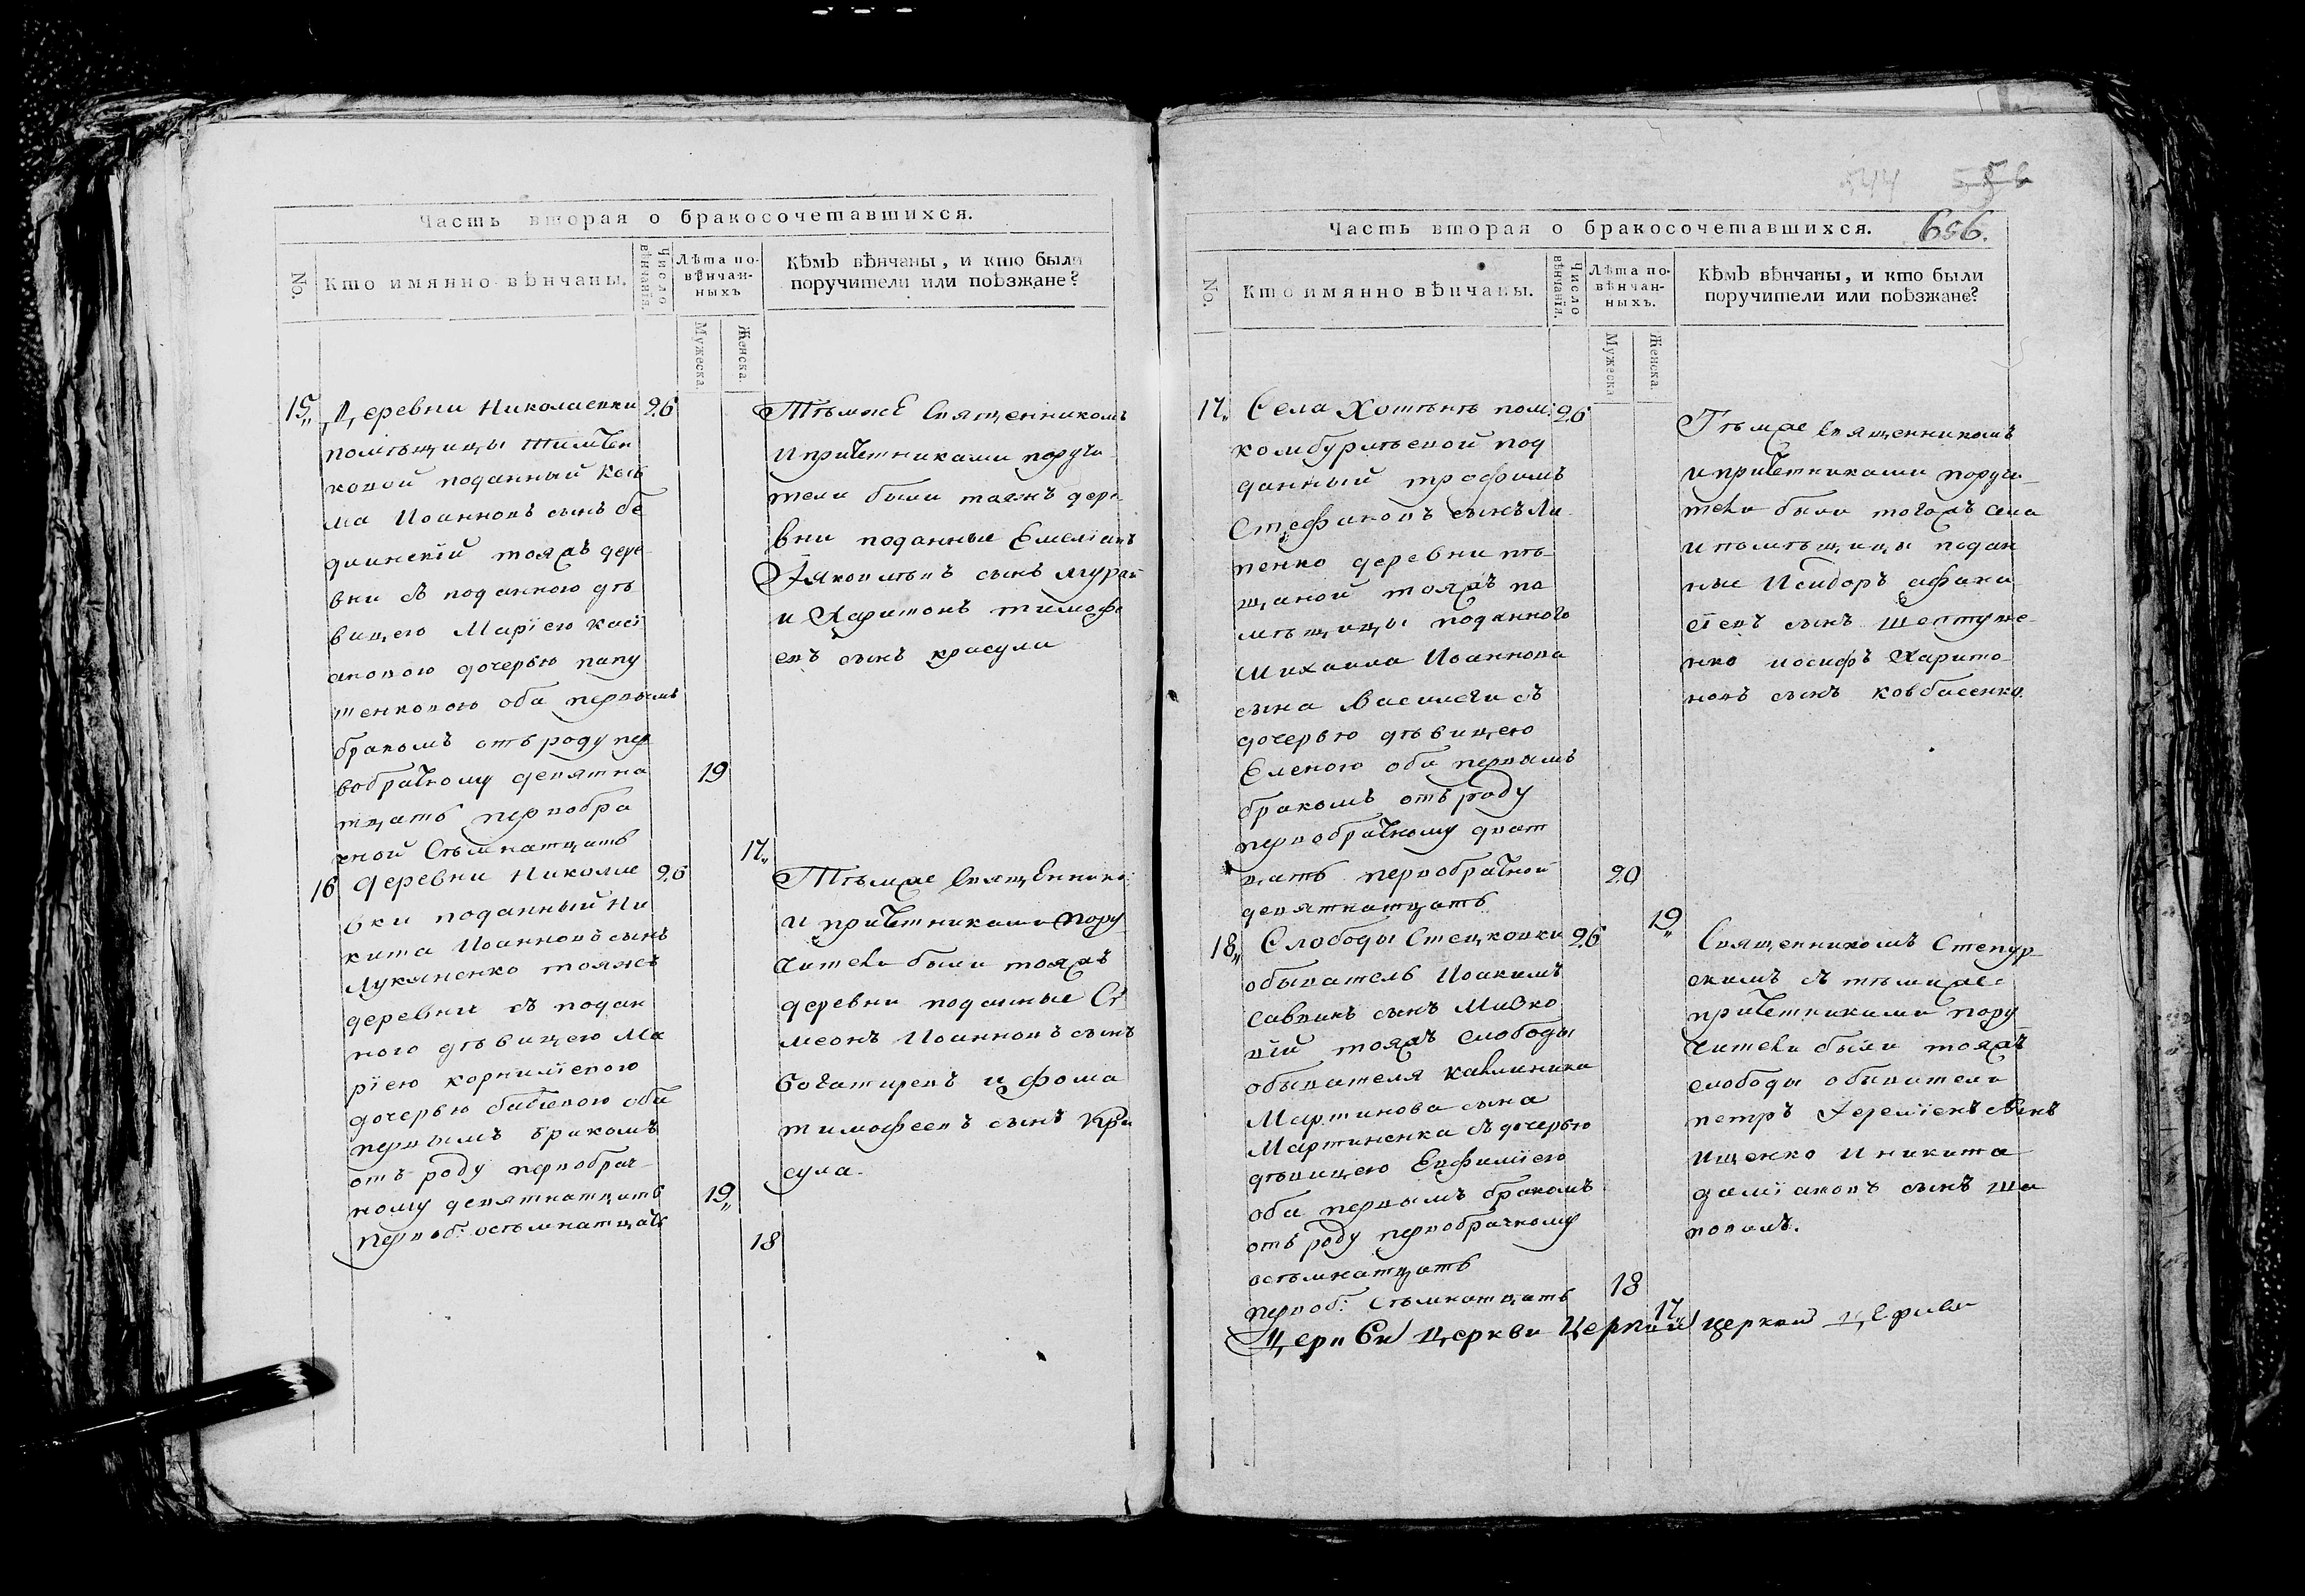 Часть вторая о бракосочетавшихся.
No.
Кто имянно вѣнчаны.
Число вѣнчанія.
Лѣта по-
вѣнчан-
ныхъ
Мужеска.
Женска.
Кѣмъ вѣнчаны, и кто были
поручители или поѣзжане?
15 Деревни Николаевки 26
помѣщицы
ковой поданный Кось
ма Иоанновъ сынъ бе
динскій тояжъ дере
вни съ поданною дѣ
вицею Маріею касі
ановою дочерью папу
шенковою оба первымъ
бракомъ отъ роду пер
вобрачному девятна 19
тцать первобра
чной Сѣмнатцать 17
Тѣмже Священникомъ
и причетниками поручи
тели были тояжъ дере
вни поданные Емеліанъ
Яковлевъ сынъ
и Харитонъ тимофе
евъ сынъ красула
16 деревни Николае 26
вки поданный Ни
кита Иоанновъ сынъ
Лукяненко тояжъ
деревни съ подан
ного дѣвицею Ма
ріею корниліевою
дочерью оба
первымъ бракомъ
отъ роду первобрач
ному девятнатцать 19
первоб: осѣмнатцать 18
Тѣмже Священнико:
и причетниками пору
чители были тояжъ
деревни поданные Сі
меонъ Иоанновъ сынъ
богатиревъ и фома
тимофеевъ сынъ Кра
сула.
544 556
Часть вторая о бракосочетавшихся. 656.
No.
Кто имянно вѣнчаны.
Число вѣнчанія.
Лѣта по-
вѣнчан-
ныхъ.
Мужеска
Женска.
Кѣмъ вѣнчаны, и кто были
поручители или поѣзжане?
17 Села Хотѣнь пом: 26
комбурлѣевой под
данный трофимъ
Стефановъ сынъ Ли
пенко деревни пѣ
щаной тояжъ по
мѣщицы поданного
Михаила Иоаннова
сына съ
дочерью дѣвицею
Еленою оба первымъ
бракомъ отъ роду
первобрачному дват
цать первобрачной 20
девятнатцать 19
Тѣмже Священникомъ
и причетниками поручи
тели были тогожъ села
и помѣщицы подан
ные Исидоръ афана
сіевъ сынъ
нко иосифъ Харито
новъ сынъ ковбасенко
18 Слободы Стецковки 26
обыватель Иоакимъ
Саввинъ сынъ
вій тояжъ слободы
обывателя Каллиника
Мартинова сына
Мартиненка съ дочерью
дѣвицею Евфиміею
оба первымъ бракомъ
отъ роду первобрачному
осѣмнатцать 18
первоб: Сѣмнатцать 17
Священникомъ
скимъ съ тѣмиже
причетниками пору
чители были тояжъ
слободы обыватели
петръ Іереміевъ сынъ
Ищенко и никита
даміановъ сынъ ша
поваль.
церкви